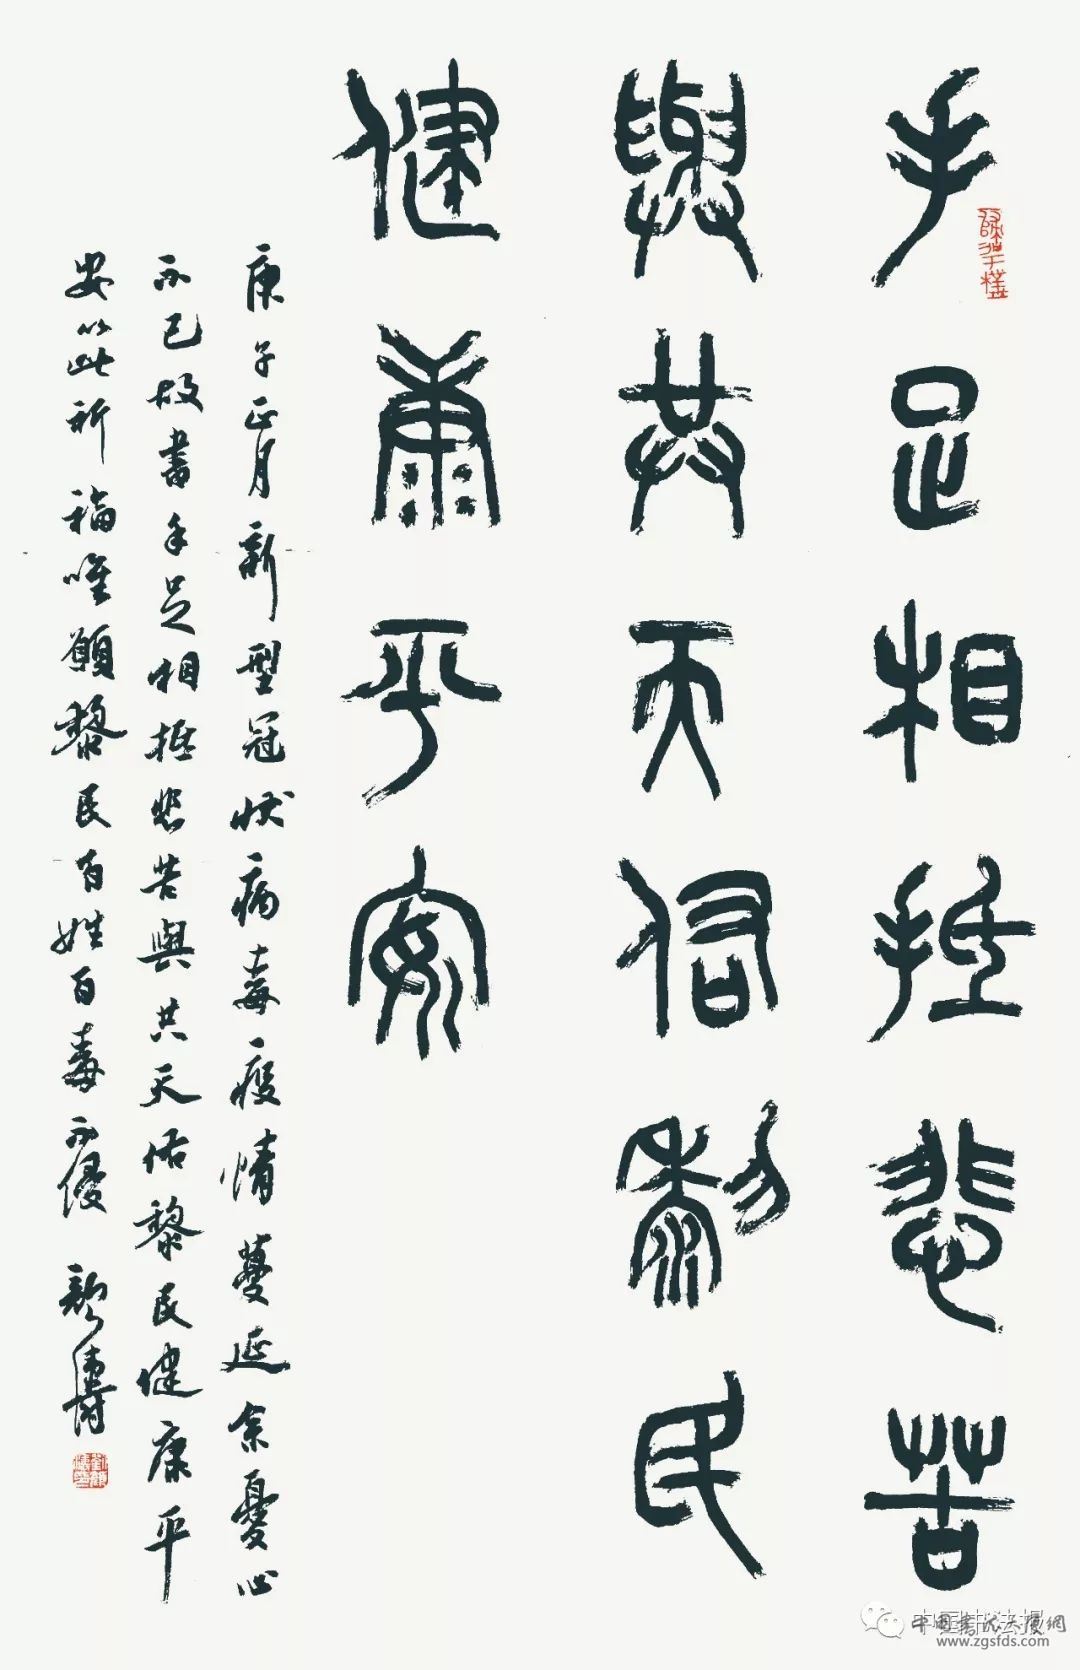 手足相抵悲苦
與共天佑黎民
健康平安
庚子正月新型冠狀病毒疫情蔓延余憂心
不已故書手足相抵悲苦與共天佑黎民健康平
安以此祈福唯願黎民百姓百毒不侵
中国书法报
www.zgsfds.com